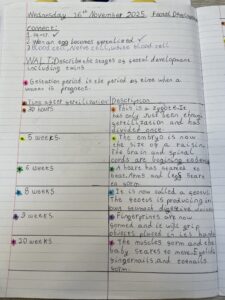 Wednesday 26th November 2025 Foetal Development
connect:
1. Ovary ✓
2. When an egg becomes fertilised ✓
3. Blood cell, Nerve cell, white blood cell.
WALT: Describe the stages of foetal development
including twins
Gestation period is the period of time when a
woman is pregnant.
Time after fertilisation Description
30 hours This is a zygote. It has
only just been through
fertilisation and has
divided once.
5 weeks The embryo is now
the size of a raisin.
The brain and spinal
cords are begining to develop
6 weeks A heart has started to
beat. Arms and legs starts
to form
8 weeks It is now called a foetus.
The foetus is producing its
own
9 weeks Fingerprints are now
formed and it will grip
objects placed in its hands
20 weeks The muscles form and the
baby starts to move. Eyelids
fingernails, and toenails
form.